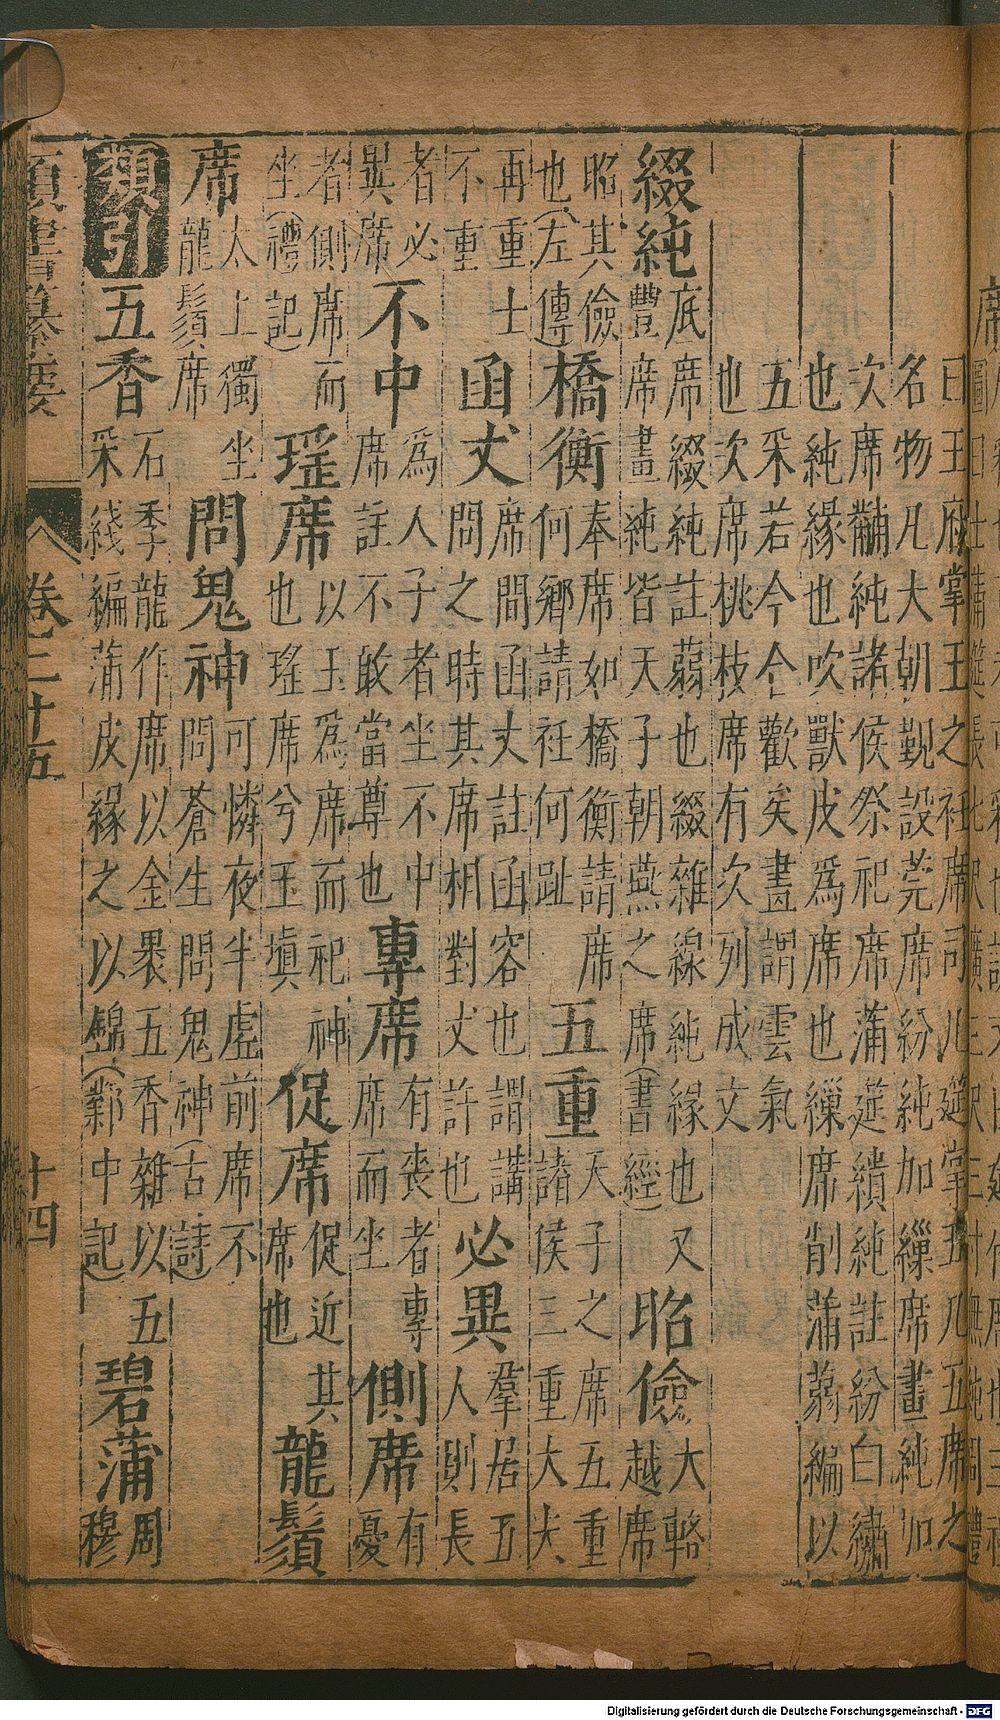 曰王府掌王之衽席司几筵掌五几五席之
名物凡大朝覲設莞席紛純加繅席畫純加
次席黼純諸侯祭祀席蒲筵繢純註紛白繡
也純緣也吹獸皮為席也繅席削蒲蒻編以
五采若今仐歡矣畫謂雲氣
也次席桃枝席有次列成文
綴純
底席綴純註蒻也綴雜線純緣也又
豐席畫純皆天子朝燕之席(書經)
昭儉
大輅
越席
昭其儉
也(左傳)
橋衡
奉席如橋衡請席
何鄉請衽何趾
五重
天子之席五重
諸侯三重大夫
再重士
不重
函丈
席間函丈註函容也謂講
問之時其席相對丈許也
必異
羣居五
人則長
者必
異席
不中
為人子者坐不中
席註不敢當尊也
專席
有喪者專
席而坐
側席
有
憂
者側席而
坐(禮記)
瑤席
以玉為席而祀神
也瑤席兮玉瑱
促席
促近其
席也
龍鬚
席
太上獨坐
龍鬚席
問鬼神
可憐夜半虛前席不
問蒼生問鬼神(古詩)
類引
五香
石季龍作席以金褁五香雜以五
采綫編蒲皮緣之以錦(鄴中記)
碧蒲
周
穆
類書纂要
卷二十五
十四
Digitalisierung gefördert durch die Deutsche Forschungsgemeinschaft - DFG